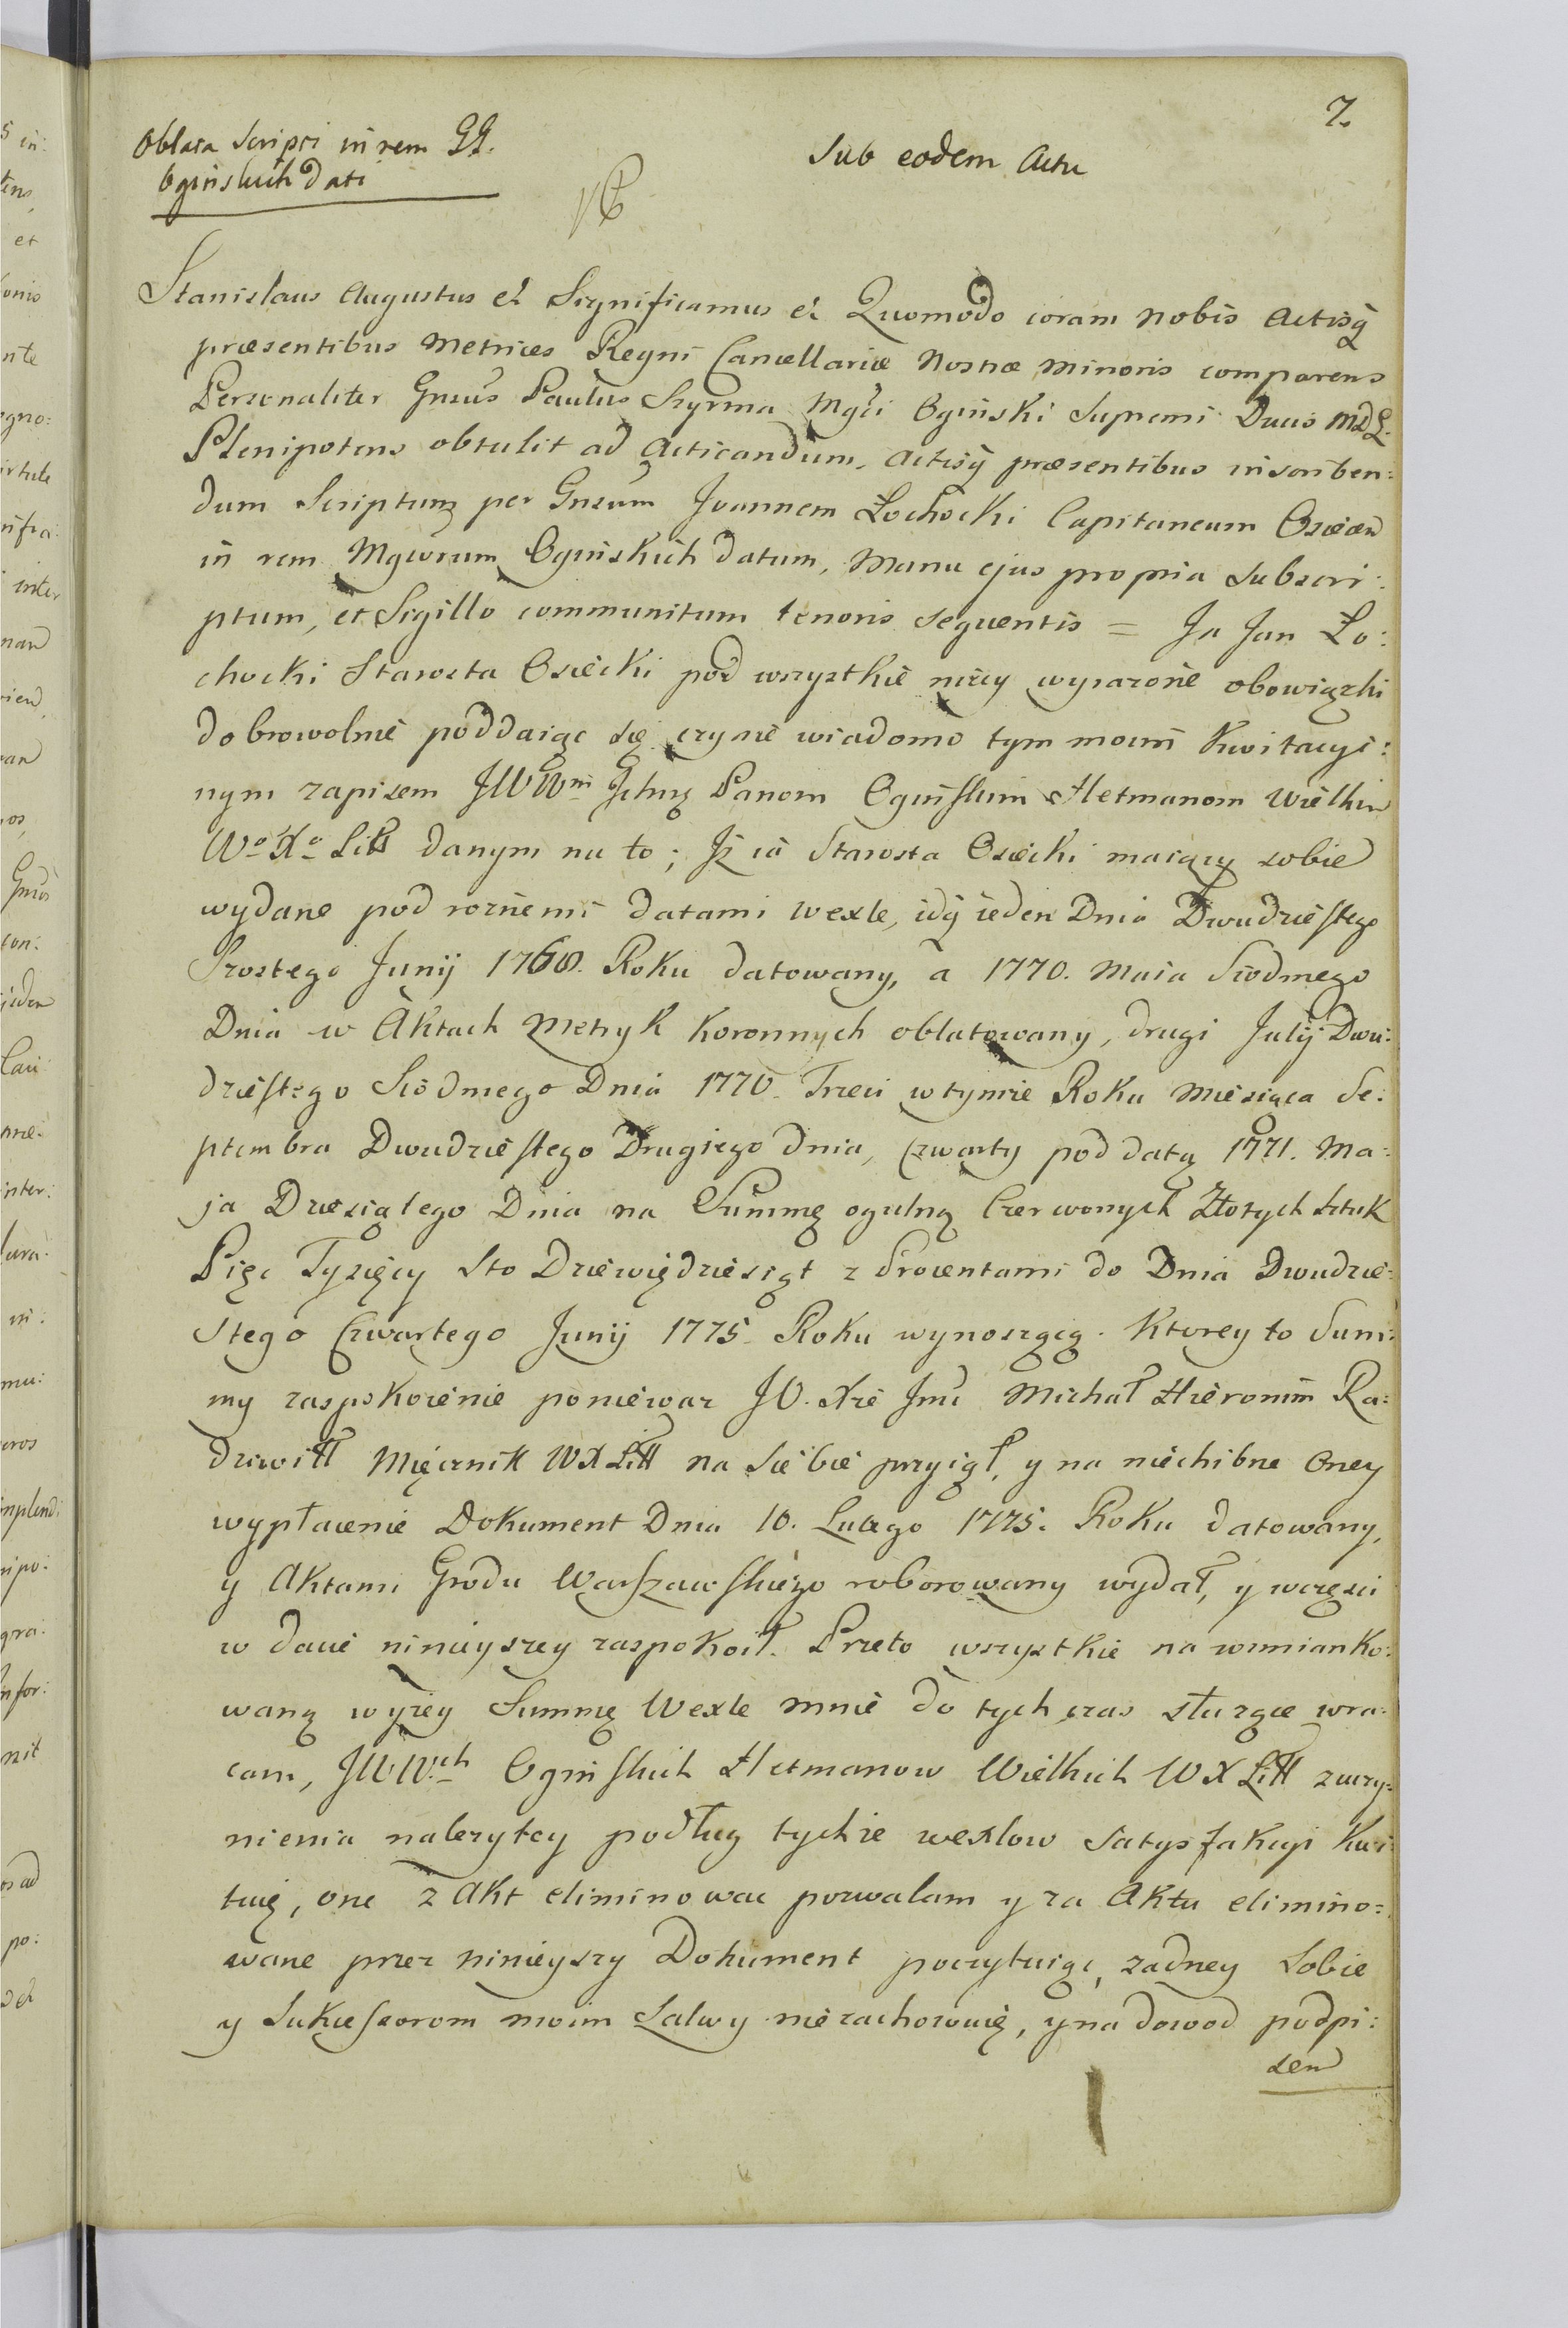 7.
Oblata Scripti in rem GG.
Oginskich Dati
Sub eodem Actu
NB
Stanislaus Augustus et Significamus et Quomodo coram nobis Actisq
præsentibus Metrices Regni Cancellariæ Nostræ Minoris comparens
Personaliter Gnsus Paulus Szyrma Mgci Oginski Supremi Ducis MDL.
Plenipotens obtulit ad Acticandum, Actisq præsentibus inscriben:
dum Scriptum per Gnsum Joannem Łochocki Capitaneum Osiecen
in rem Mgcorum Oginskich datum, Manu ejus propria subscri:
ptum, et Sigillo communitum tenoris sequentis = Ja Jan Ło:
chocki Starosta Osiecki pod wszystkie niżey wyrażone obowiązki
dobrowolnie poddaiąc się czynie wiadomo tym moim Kwitacyi:
nym zapisem JWWm Ichmę Panom Oginskim Hetmanom Wielkim
Wo Xo Litt danym na to; Iż ia Starosta Osiecki maiący sobie
wydane pod roznemi datami Wexle, idq ieden Dnia Dwudziestego
Szostego Junij 1768. Roku datowany, a 1770. Maia Siodmego
Dnia w Aktach Metryk Koronnych oblatowany, drugi Julij Dwu:
dziestego Siodmego Dnia 1770. Trzeci w tymże Roku Miesiąca Se:
ptembra Dwudziestego Drugiego dnia, Czwarty pod datą 1771. Ma:
ja Dziesiątego Dnia na Summę ogulną Czerwonych Złotych sztuk
Pięc Tysięcy Sto Dziewiędziesiąt z Prowentami do Dnia Dwudzie:
stego Czwartego Junij 1775. Roku wynoszącą. Ktorey to Sum:
my zaspokoienie ponieważ JO. Xże Jmć Michał Hieronim Ra:
dziwiłł Miecznik WXLitt na siebie przyiął, y na niechibne Oney
wypłacenie Dokument Dnia 10. Lutego 1775. Roku datowany,
y Aktami Grodu Warszawskiego roborowany wydał, y wczęsci
w dacie ninieyszey zaspokoił. Przeto wszystkie na wzmianko:
waną wyżey Summę Wexle mnie do tych czas służące wra:
cam, JWWch Oginskich Hetmanow Wielkich WXLitt z uczy:
nienia należytey podług tychże wexlow Satysfakcyi kwi:
tuię, one z Akt eliminowac pozwalam y za Aktu elimino=
wane przez ninieyszy Dokument poczytuiąc, żadney Sobie
y Sukcessorom moim Salwy nie zachowuię, y na dowod podpi:
sem